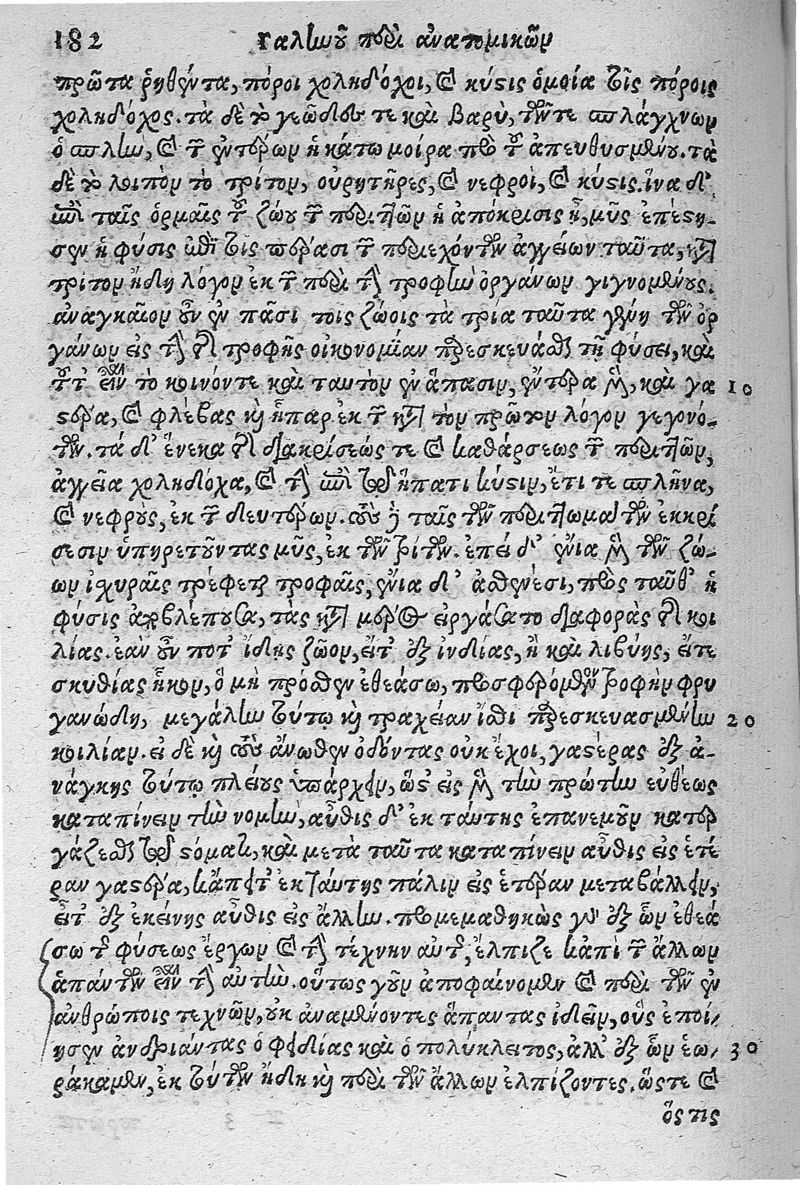 182 Γαληνοῦ περὶ ἀνατομικῶν
πρῶτα ῥηθέντα, πόροι χοληδόχοι, καὶ κύστις ὁμοία τοῖς πόροις
χοληδόχος. τὰ δὲ τὸ γεῶδές τε καὶ βαρὺ, τῶν τε σπλάγχνων
ὁ σπλὴν, καὶ τῶν ἐντέρων ἡ κάτω μοίρα πρὸ τοῦ ἀπευθυσμένου. τὰ
δὲ τὸ λοιπὸν τὸ τρίτον, οὐρητῆρες, καὶ νεφροὶ, καὶ κύστις. ἵνα δ'
ἐπὶ ταῖς ὁρμαῖς τοῦ ζώου τῶν περιττῶν ἡ ἀπόκρισις ᾖ, μῦς ἐπέστη-
σεν ἡ φύσις ἐπὶ τοῖς πέρασι τῶν περιεχόντων ἀγγείων ταῦτα, κατὰ
τρίτον ἤδη λόγον ἐκ τῶν περὶ τὴν τροφὴν ὀργάνων γιγνομένους.
ἀναγκαῖον οὖν ἐν πᾶσι τοῖς ζώοις τὰ τρία ταῦτα γένη τῶν ὀρ
γάνων εἰς τὴν τῆς τροφῆς οἰκονομίαν παρεσκευάσθαι τῇ φύσει, καὶ
τοῦτ' εἶναι τὸ κοινόν τε καὶ ταυτὸν ἐν ἅπασιν, ἔντερα μὲν, καὶ γα 10
στέρα, καὶ φλέβας καὶ ἧπαρ ἐκ τῶν κατὰ τὸν πρῶτον λόγον γεγονό-
των. τὰ δ' ἕνεκα τῆς διακρίσεώς τε καὶ καθάρσεως τῶν περιττῶν,
ἀγγεῖα χοληδόχα, καὶ τὴν ἐπὶ τῷ ἥπατι κύστιν, ἔτι τε σπλῆνα,
καὶ νεφροὺς, ἐκ τῶν δευτέρων. τοὺς δὲ ταῖς τῶν περιττωμάτων ἐκκρί
σεσιν ὑπηρετοῦντας μῦς, ἐκ τῶν τρίτων. ἐπεὶ δ' ἔνια μὲν τῶν ζώ-
ων ἰσχυραῖς τρέφεται τροφαῖς, ἔνια δ' ἀσθενέσι, πρὸς ταῦθ' ἡ
φύσις ἀποβλέπουσα, τὰς κατὰ μέρος εἰργάσατο διαφορὰς τῆς κοι
λίας. ἐὰν οὖν ποτ' ἴδῃς ζῶον, εἴτ' ἐξ ἰνδίας, ἢ καὶ λιβύης, εἴτε
σκυθίας ἧκον, ὃ μὴ πρόσθεν ἐθεάσω, προσφερόμενον τροφὴν φρυ
γανώδη, μεγάλην τούτῳ καὶ τραχεῖαν ἴσθι παρεσκευασμένην 20
κοιλίαν. εἰ δὲ καὶ τοὺς ἄνωθεν ὀδόντας οὐκ ἔχοι, γαστέρας ἐξ ἀ-
νάγκης τούτῳ πλείους ὑπάρχειν, ὥστ' εἰς μὲν τὴν πρώτην εὐθέως
καταπίνειν τὴν νομὴν, αὖθις δ' ἐκ ταύτης ἐπανεμοῦν κατερ
γάζεσθαι τῷ στόματι, καὶ μετὰ ταῦτα καταπίνειν αὖθις εἰς ἑτέ
ραν γαστέρα, κἄπειτ' ἐκ ταύτης πάλιν εἰς ἑτέραν μεταβάλλειν,
εἶτ' ἐξ ἐκείνης αὖθις εἰς ἄλλην. προμεμαθηκὼς γὰρ ἐξ ὧν ἐθεά
σω τῶν φύσεως ἔργων καὶ τὴν τέχνην αὐτῆς, ἔλπιζε κἀπὶ τῶν ἄλλων
ἁπάντων εἶναι τὴν αὐτήν. οὕτως γοῦν ἀποφαίνομεν καὶ περὶ τῶν ἐν
ἀνθρώποις τεχνῶν, οὐκ ἀναμένοντες ἅπαντας ἰδεῖν, οὓς ἐποί-
ησεν ἀνδριάντας ὁ φειδίας καὶ ὁ πολύκλειτος, ἀλλ' ἐξ ὧν ἑω- 30
ράκαμεν, ἐκ τούτων ἤδη καὶ περὶ τῶν ἄλλων ἐλπίζοντες. ὥστε καὶ
ὅς τις